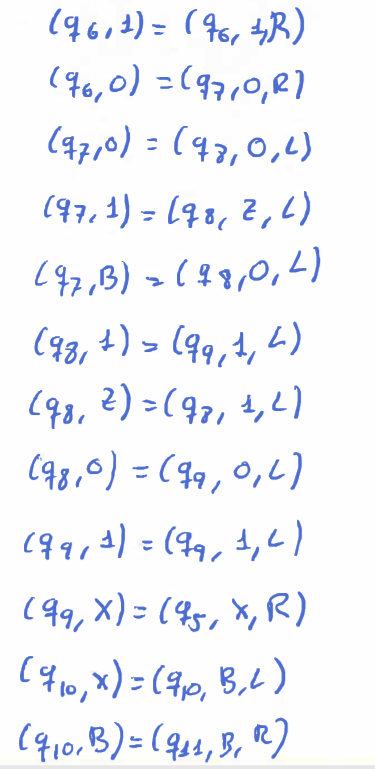 (q6,1)= (q6, 1,R)
(q6,0) =(q7,0,R)
(q7,0) = (q8, 0,L)
(q7, 1)=(q8, Z, L)
(q7,B) = (q8,0,L)
(q8, 1) = (q9, 1, L)
(q8, Z)=(q8, 1,L)
(q8,0) =(q9, 0,L)
(q9,1) =(q9, 1,L)
(q9, X)= (q5, X, R)
(q10,x)=(q10, B,L)
(q10,B)=(q11,B,R)